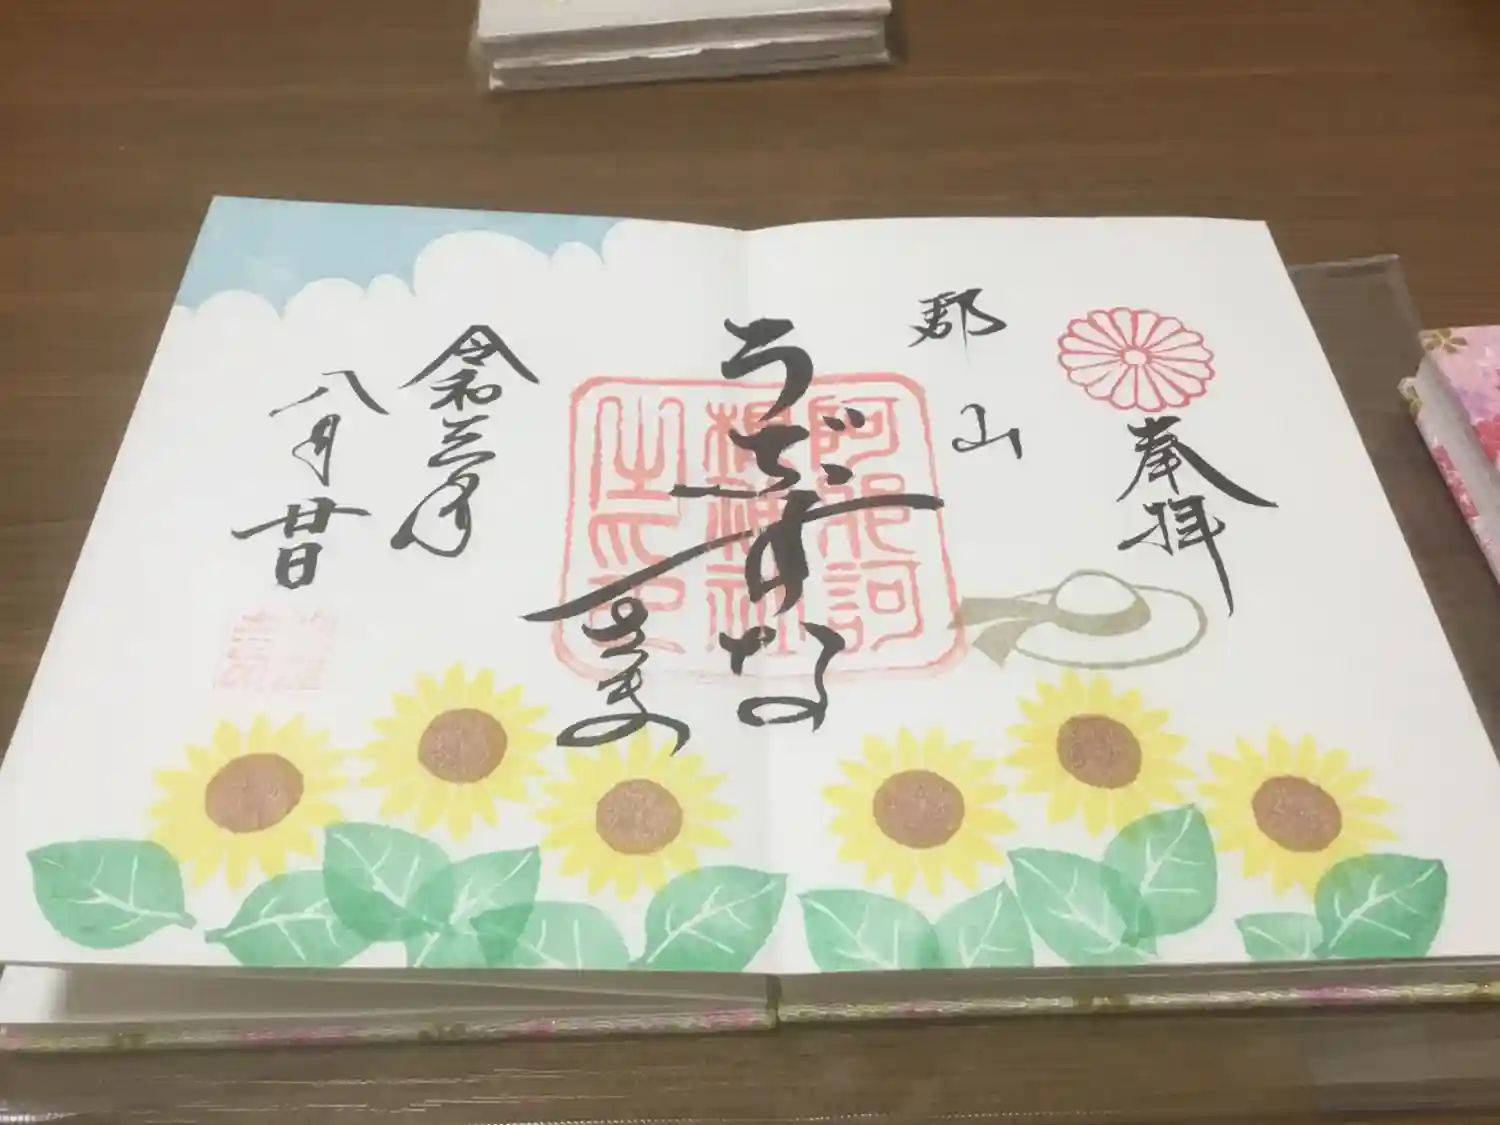 奉拝
郡山
阿邪訶
根神社
之印
うぶすな
さま
令和三年
八月廿日